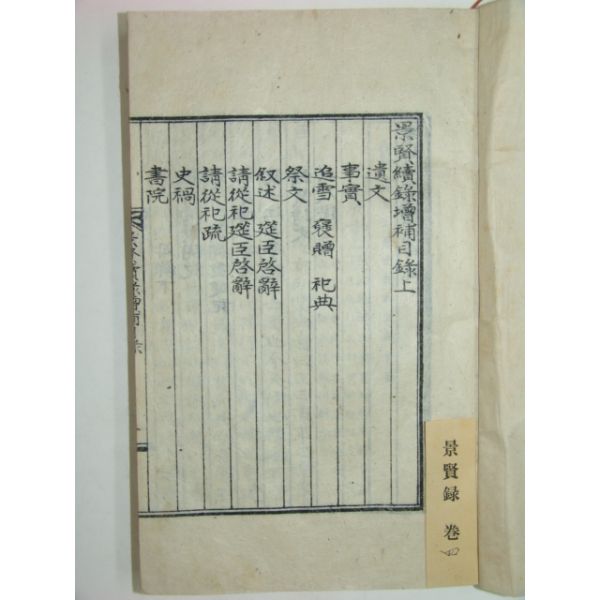 景賢續錄增補目錄上
遺文
事實
追雪 襃贈 祀典
祭文
叙述 筵臣啓辭
請從祀筵臣啓辭
請從祀疏
史禍
書院
景賢録 巻四